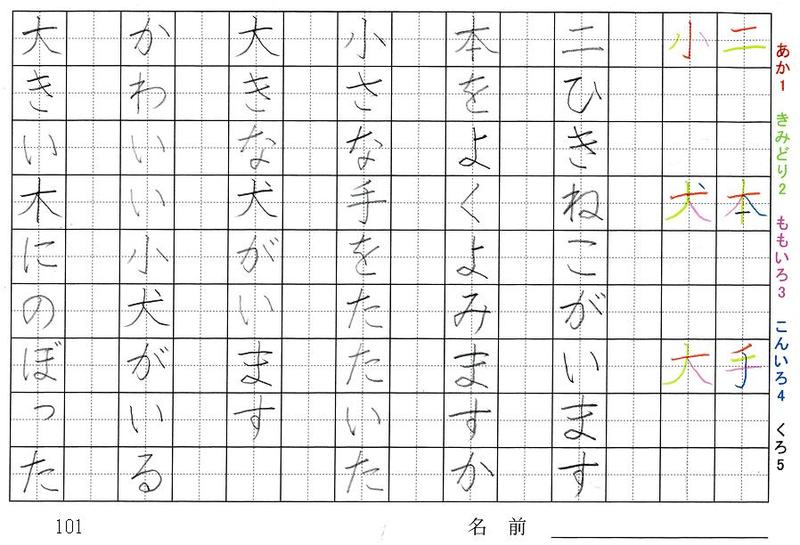 あか1 きみどり2 ももいろ3 こんいろ4 くろ5
二 本 手
小 犬 大
二ひきねこがいます
本をよくよみますか
小さな手をたたいた
大きな犬がいます
かわいい小犬がいる
大きい木にのぼった
名前
101